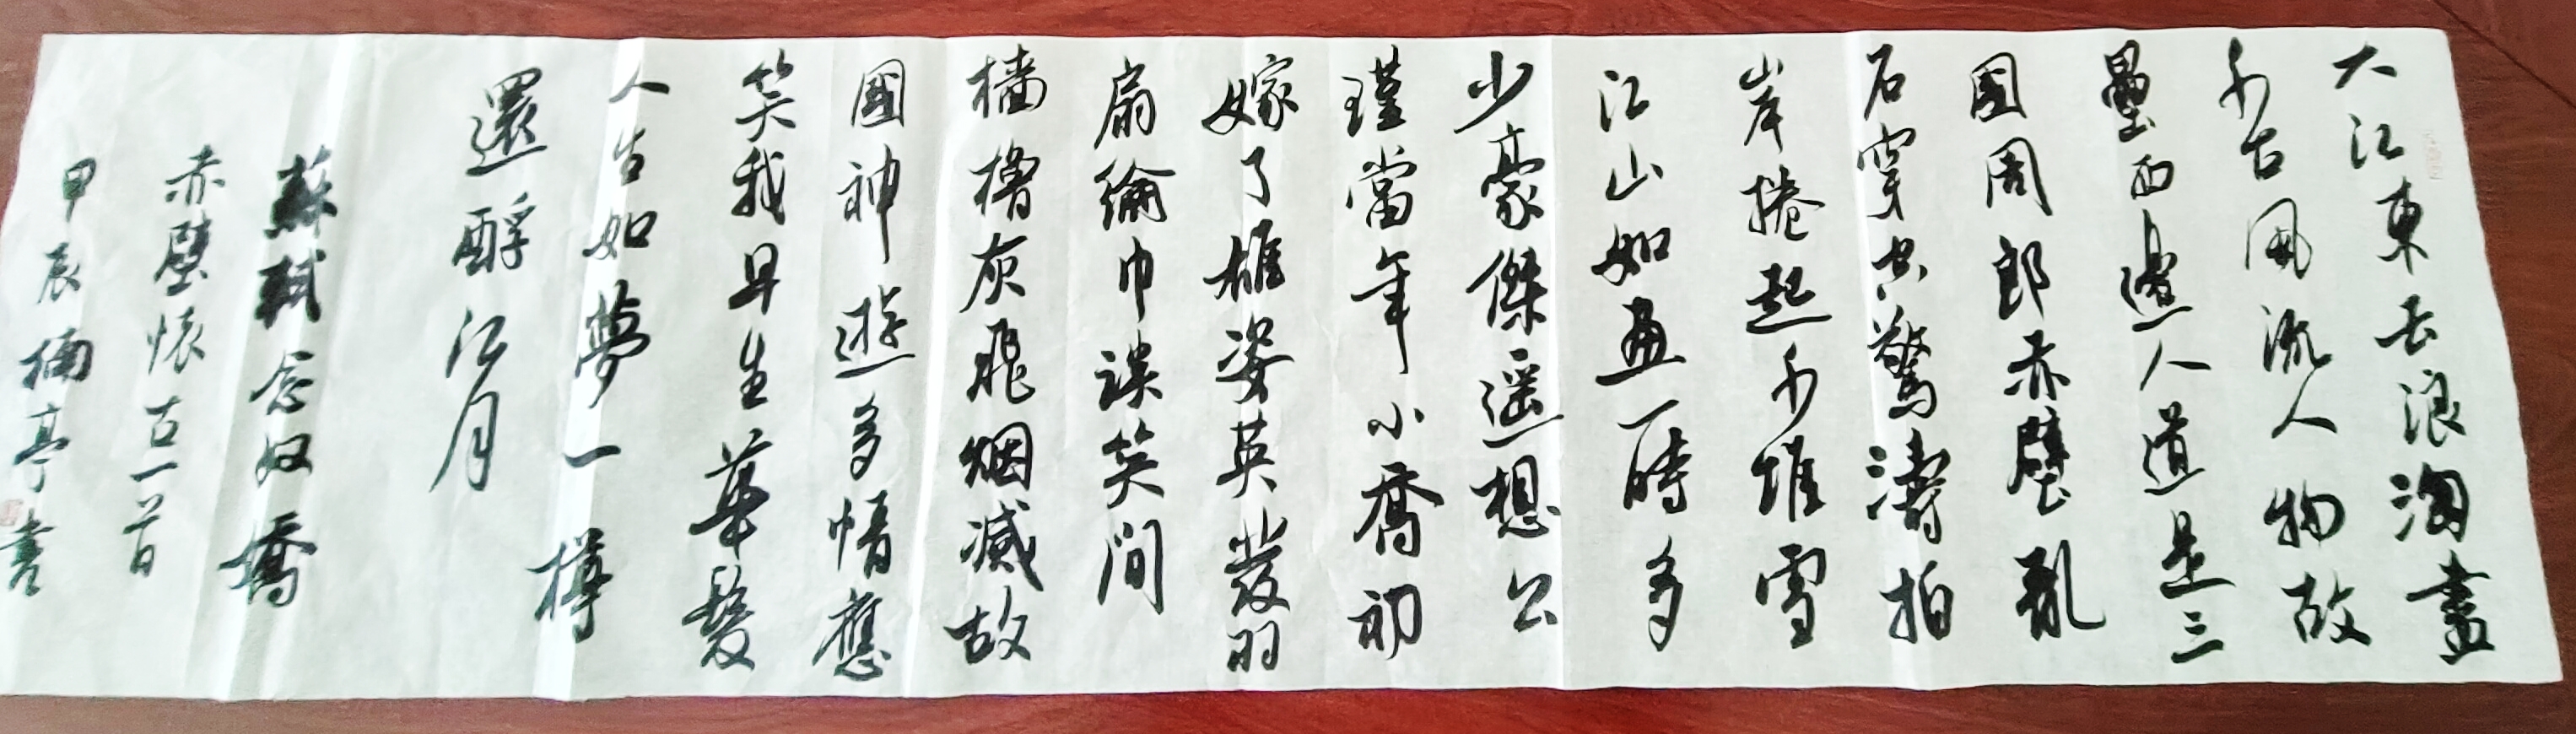 大江東去浪淘盡
千古風流人物故
壘西邊人道是三
國周郎赤壁亂
石穿空驚濤拍
岸捲起千堆雪
江山如畫一時多
少豪傑遥想公
瑾當年小喬初
嫁了雄姿英發羽
扇綸巾談笑間
檣櫓灰飛烟滅故
國神遊多情應
笑我早生華髮
人生如夢一樽
還酹江月
蘇軾念奴嬌
赤壁懷古一首
甲辰楠亭書